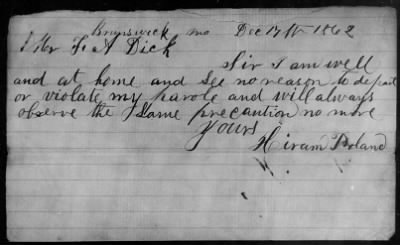 Brunswick mo Dec 17th 1862
Mr F. A Dick
Sir I am well
and at home and see no reason to depart
or violate my parole and will always
observe the same precaution no more
Yours
Hiram Boland